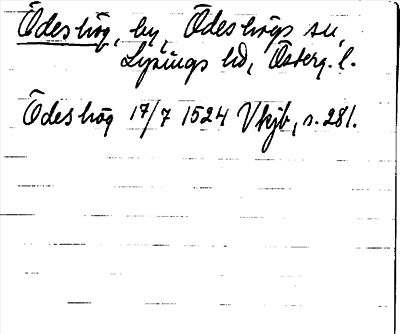 Ödeshög, by, Ödeshögs sn,
Lysings hd, Österg. l.
Ödeshög 17/7 1524 Vkjb, s. 281.